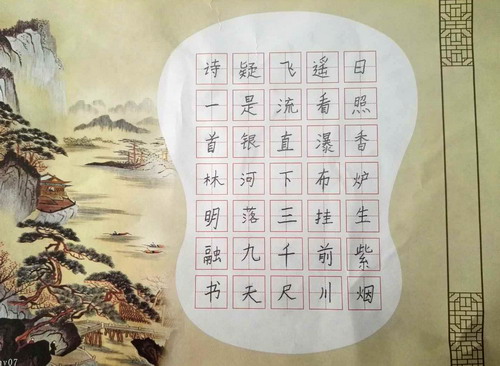 日照香炉生紫烟
遥看瀑布挂前川
飞流直下三千尺
疑是银河落九天
诗一首林明融书